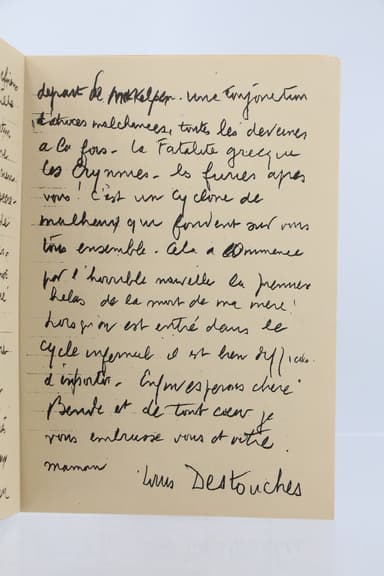 depart de Mikkelsen. Une conjonction
d'atroces malchances, toutes les deveines
a la fois - la Fatalité grecque
les Erynnies - les furies après
vous ! C'est un cyclone de
malheurs qui fondent sur vous
tous ensemble. Cela a commencé
par l'horrible nouvelle la première
helas de la mort de ma mère !
Lorsqu'on est entré dans le
cycle infernal il est bien difficile
d'en sortir - Enfin esperons chère
Bente et de tout cœur je
vous embrasse vous et votre
maman
Louis Destouches